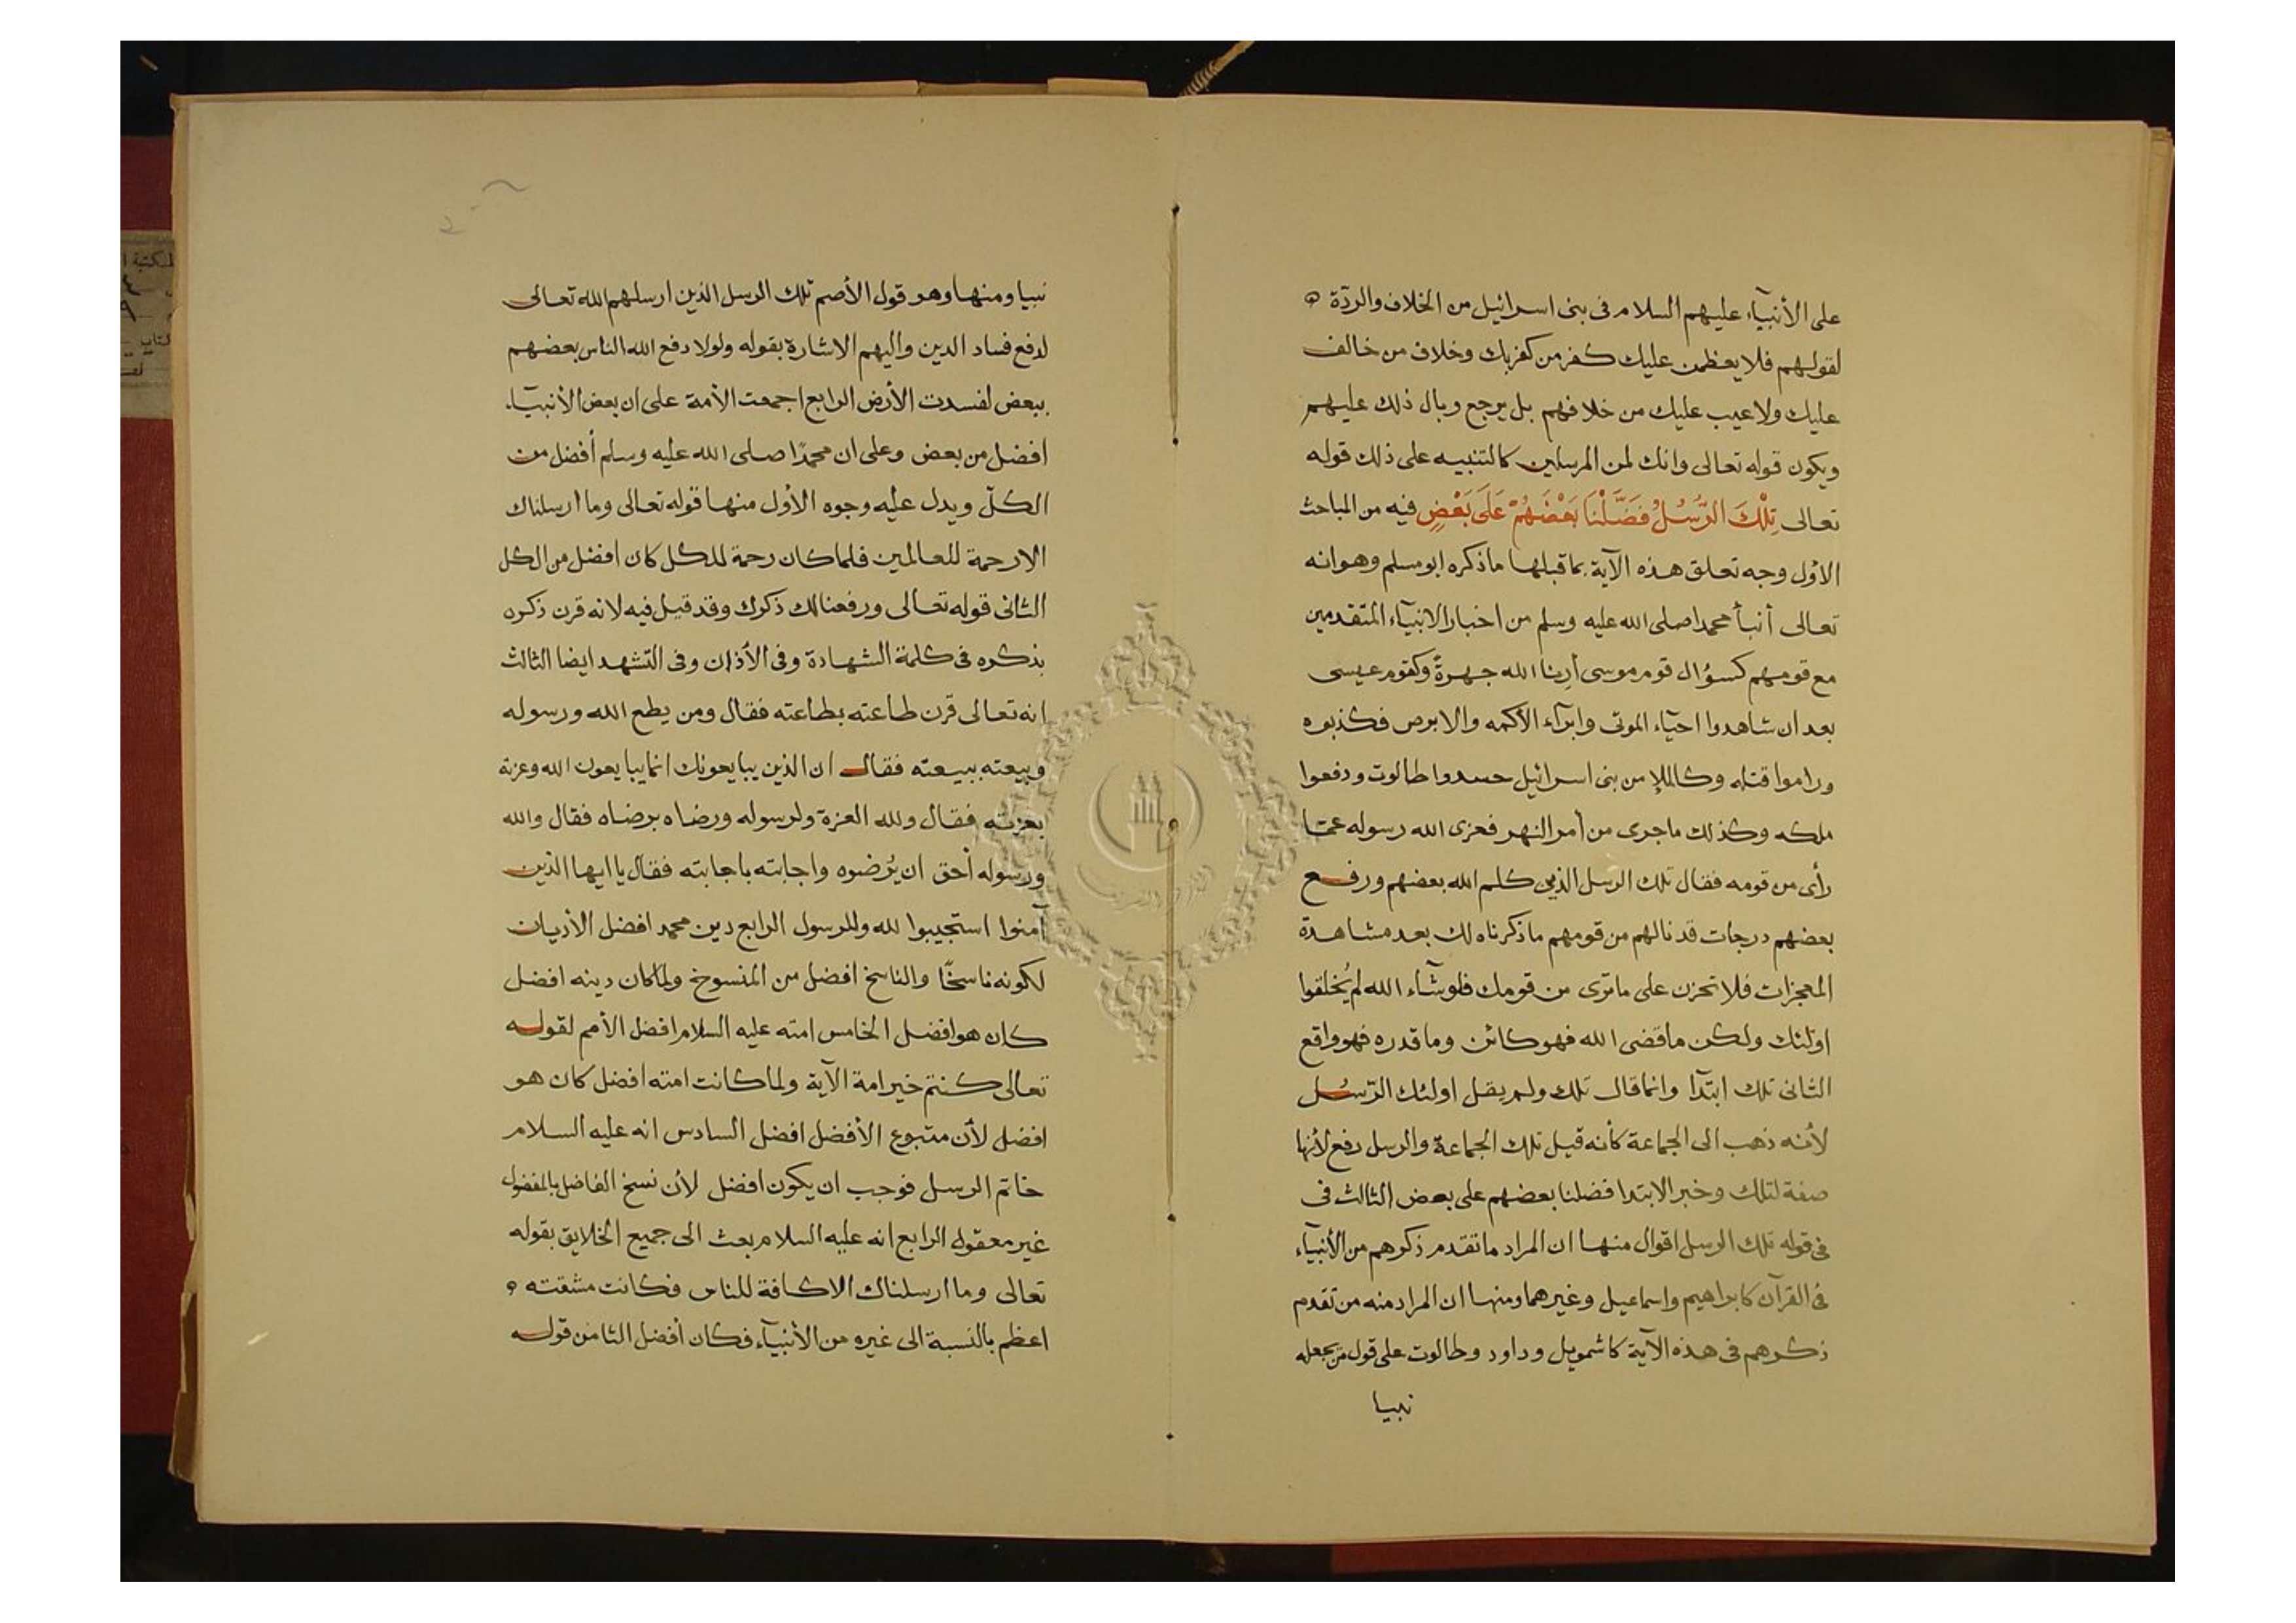 على الأنبيآء عليهم السلام فى بنى اسرائيل من الخلاف والردّة
لقولهم فلا يعظمن عليك كفر من كفر بك وخلاف من خالف
عليك ولا عيب عليك من خلافهم بل يرجع وبال ذلك عليهم
ويكون قوله تعالى وانك لمن المرسلين كالتنبيه على ذلك قوله
تعالى تِلْكَ الرُّسُلُ فَضَّلْنَا بَعْضَهُمْ عَلَى بَعْضٍ فيه من المباحث
الاوّل وجه تعلق هذه الآية بما قبلها ما ذكره ابو مسلم وهو انه
تعالى أنبأ محمدا صلى الله عليه وسلم من اخبار الانبيآء المتقدمين
مع قومهم كسؤال قوم موسى أرنا الله جهرةً وكقوم عيسى
بعد ان شاهدوا احيآء الموتى وابرآء الأكمه والابرص فكذبوه
وراموا قتله وكالملإ من بنى اسرائيل حسدوا طالوت ودفعوا
ملكه وكذلك ما جرى من أمر النهر فعزى الله رسوله عمّا
رأى من قومه فقال تلك الرسل الذين كلم الله بعضهم ورفع
بعضهم درجات قد نالهم من قومهم ما ذكرناه لك بعد مشاهدة
المعجزات فلا تحزن على ما ترى من قومك فلو شآء الله لم يُختلقوا
اولئك ولكن ما قضى الله فهو كائن وما قدره فهو واقع
الثانى تلك ابتدآ وانما قال تلك ولم يقل اولئك الرّسُل
لأنه ذهب الى الجماعة كأنه قيل تلك الجماعة والرسل رفع لأنها
صفة لتلك وخبر الابتدا فضلنا بعضهم على بعض الثالث فى
فى قوله تلك الرسل اقوال منها ان المراد ما تقدم ذكرهم من الأنبيآء
فى القرآن كابراهيم واسماعيل وغيرهما ومنها ان المراد منه من تقدم
ذكرهم فى هذه الآية كاشمويل وداود وطالوت على قول من يجعله
نبيا
نبيا ومنها وهو قول الأصم تلك الرسل الذين ارسلهم الله تعالى
لدفع فساد الدين واليهم الاشارة بقوله ولولا دفع الله الناس بعضهم
ببعض لفسدت الأرض الرابع اجمعت الأمة على ان بعض الأنبيآء
افضل من بعض وعلى ان محمدًا صلى الله عليه وسلم أفضل من
الكلّ ويدل عليه وجوه الأول منها قوله تعالى وما ارسلناك
الا رحمة للعالمين فلما كان رحمة للكل كان افضل من الكل
الثانى قوله تعالى ورفعنا لك ذكرك وقد قيل فيه لانه قرن ذكره
بذكره فى كلمة الشهادة وفى الأذان وفى التشهد ايضا الثالث
انه تعالى قرن طاعته بطاعته فقال ومن يطع الله ورسوله
وبيعته ببيعته فقال ان الذين يبايعونك انما يبايعون الله وعزة
بعزته فقال ولله العزة ولرسوله ورضاه برضاه فقال والله
ورسوله أحق ان يُرضوه واجابته باجابته فقال يا ايها الذين
آمنوا استجيبوا لله وللرسول الرابع دين محمد افضل الأديان
لكونه ناسخًا والناسخ افضل من المنسوخ ولما كان دينه افضل
كان هو افضل الخامس امته عليه السلام افضل الأمم لقوله
تعالى كنتم خير امة الآية ولما كانت امته افضل كان هو
افضل لأن متبوع الأفضل افضل السادس انه عليه السلام
خاتم الرسل فوجب ان يكون افضل لأن نسخ الفاضل بالمفضول
غير معقول الرابع انه عليه السلام بعث الى جميع الخلايق بقوله
تعالى وما ارسلناك الا كافة للناس فكانت مشقته
اعظم بالنسبة الى غيره من الأنبيآء فكان أفضل الثامن قوله